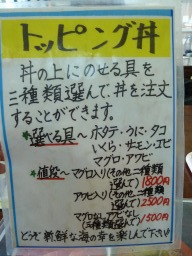 トッピング丼
丼の上にのせる具を
三種類選んで、丼を注文
することができます。
*選べる具〜ホタテ・うに・タコ
いくら・サーモン・エビ
マグロ・アワビ
*値段〜マグロ入り(その他二種類
選んで)1800円
アワビ入り(その他二種類
選んで)2500円
マグロなし アワビなし
(三種類選んで)1500円
どうぞ新鮮な海の幸を楽しんで下さい